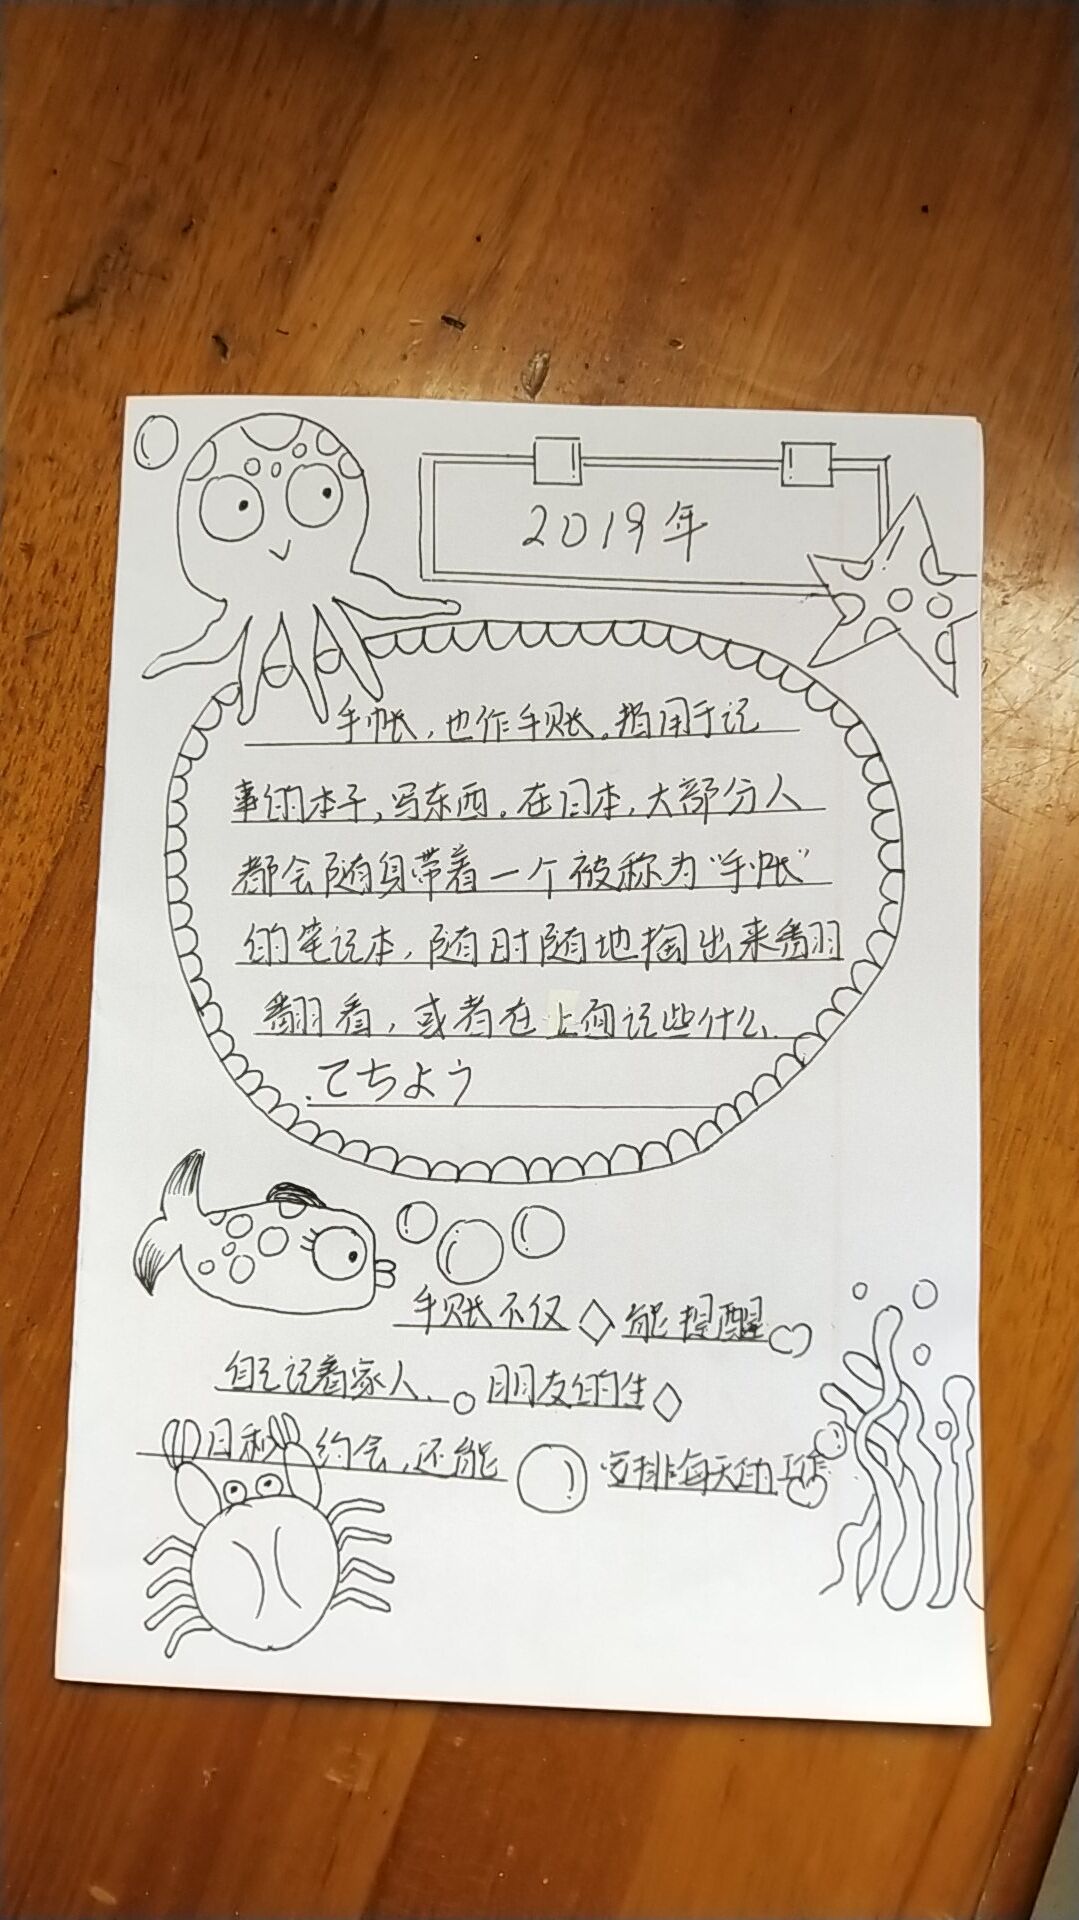 2019年
手帐，也作手账。指用于记
事的本子，写东西。在日本，大部分人
都会随身带着一个被称为“手帐”
的笔记本，随时随地掏出来翻
翻看，或者在上面记些什么.
.てちよう
手账不仅能提醒
自己记着家人、朋友的生
日和约会，还能安排每天的